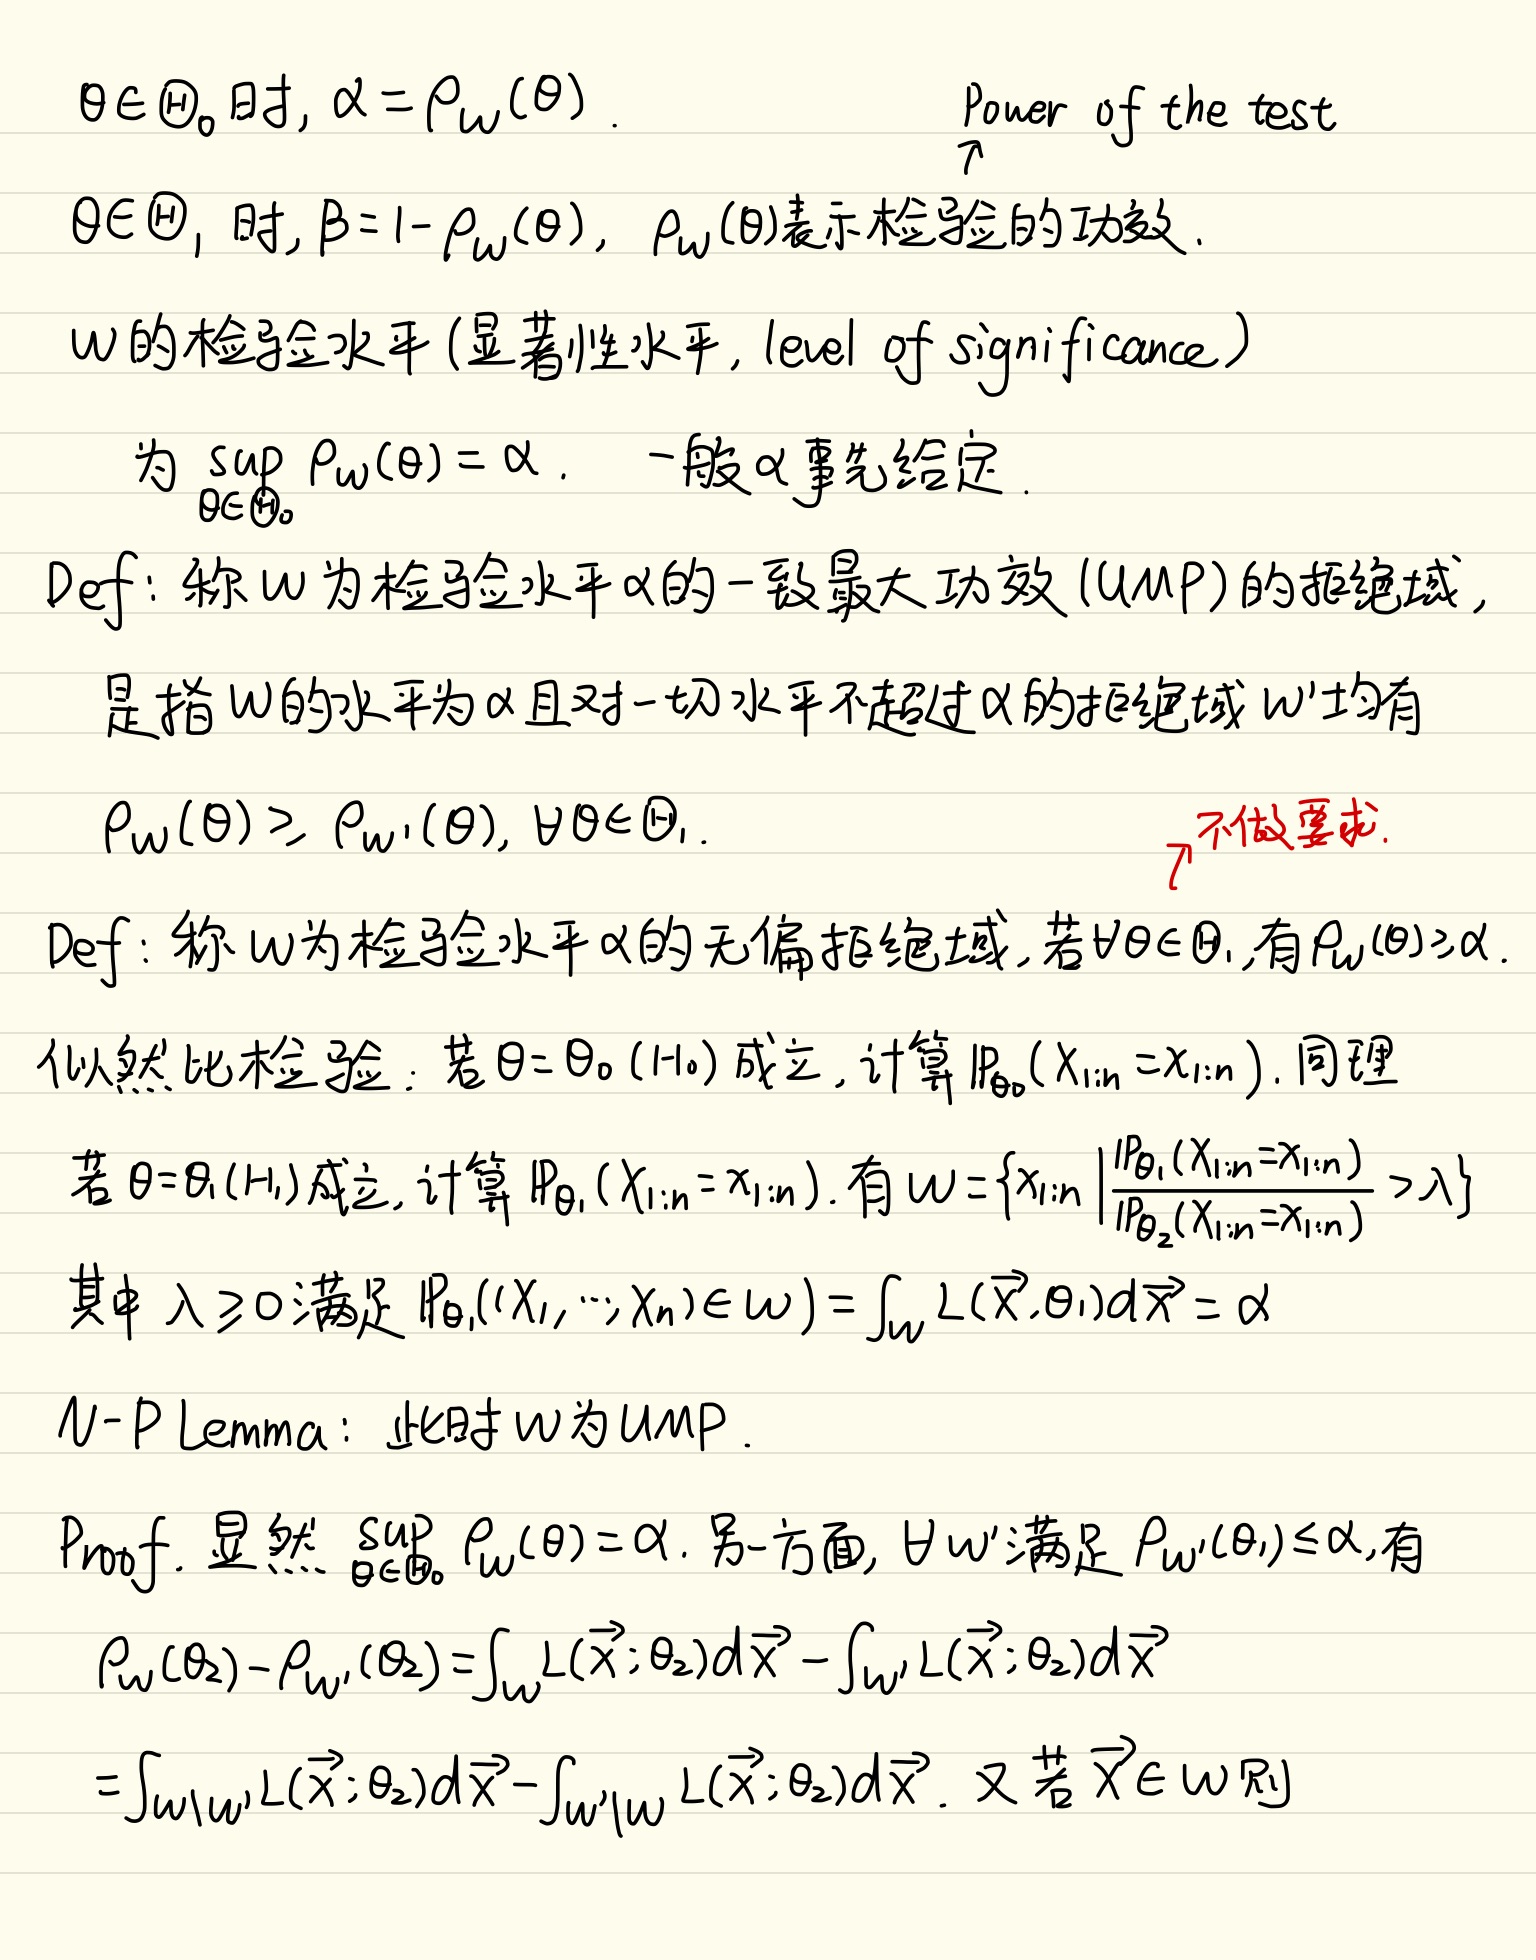 θ∈Θ₀时, α = ρ_W(θ).
Power of the test
↗
θ∈Θ₁时, β = 1 - ρ_W(θ), ρ_W(θ)表示检验的功效.
W的检验水平(显著性水平, level of significance)
为 sup_{θ∈Θ₀} ρ_W(θ) = α. 一般α事先给定.
Def: 称W为检验水平α的一致最大功效(UMP)的拒绝域,
是指W的水平为α且对一切水平不超过α的拒绝域W'均有
ρ_W(θ) ≥ ρ_W'(θ), ∀θ∈Θ₁.
↗不做要求.
Def: 称W为检验水平α的无偏拒绝域, 若∀θ∈Θ₁, 有ρ_W(θ) ≥ α.
似然比检验: 若θ=θ₀(H₀)成立, 计算ℙ_{θ₀}(X_{1:n} = x_{1:n}). 同理
若θ=θ₁(H₁)成立, 计算ℙ_{θ₁}(X_{1:n} = x_{1:n}). 有W = {x_{1:n} | ℙ_{θ₁}(X_{1:n}=x_{1:n}) / ℙ_{θ₂}(X_{1:n}=x_{1:n}) > λ}
其中 λ ≥ 0 满足 ℙ_{θ₁}((X₁, ⋯, Xₙ)∈W) = ∫_W L(x⃗, θ₁)dx⃗ = α
N-P Lemma: 此时W为UMP.
Proof. 显然 sup_{θ∈Θ₀} ρ_W(θ) = α. 另一方面, ∀W'满足 ρ_W'(θ₁) ≤ α, 有
ρ_W(θ₂) - ρ_W'(θ₂) = ∫_W L(x⃗; θ₂)dx⃗ - ∫_W' L(x⃗; θ₂)dx⃗
= ∫_{W\W'} L(x⃗; θ₂)dx⃗ - ∫_{W'\W} L(x⃗; θ₂)dx⃗. 又若 x⃗∈W 则